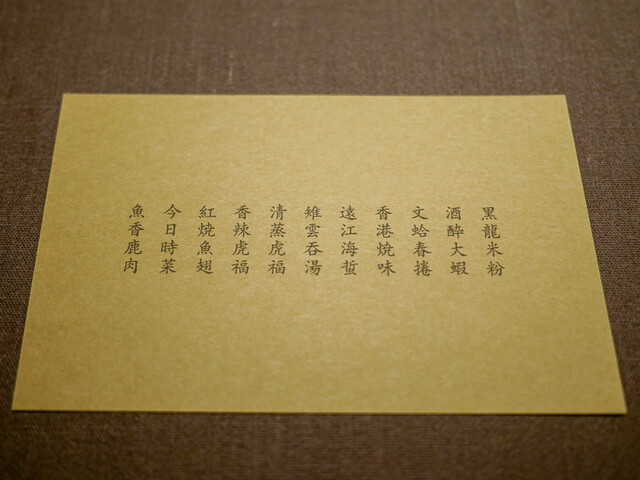 黒龍米粉
酒酔大蝦
文蛤春捲
香港焼味
遠江海蜇
雉雲呑湯
清蒸虎福
香辣虎福
紅焼魚翅
今日時菜
魚香鹿肉